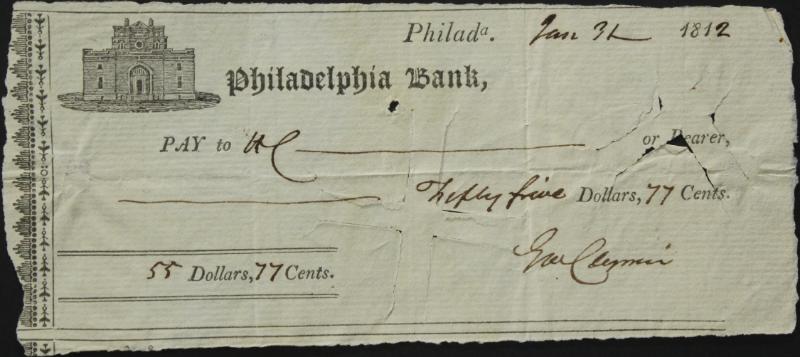 Philadª. Jan 31 1812
Philadelphia Bank,
PAY to HC or Bearer,
Fifty five Dollars, 77 Cents.
Geo Clymer
55 Dollars, 77 Cents.